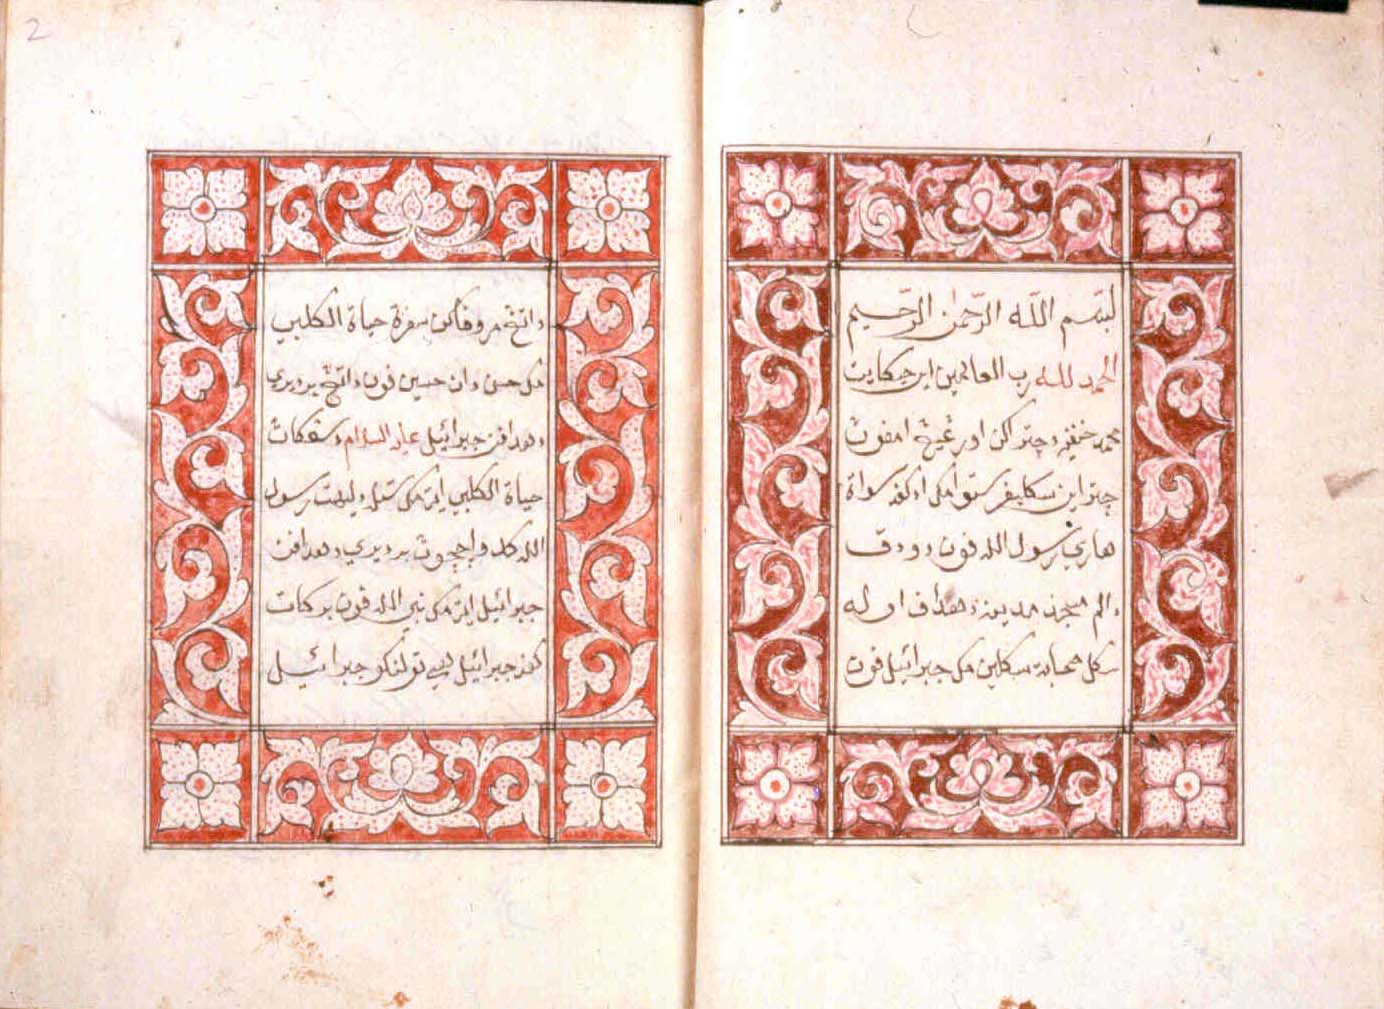 بسم الله الرّحمٰن الرّحيم
الحمد لله رب العالمين اين حكايت
محمد حنفيه دچتراكن اورڠ يڠ امفون
چترا اين سكليفرستوا مك اد كفد سوات
هاري رسول الله فون دودق
دالم مسجد مدينة دهدف اوله
سكل صحابة سكلين مك جبرائيل فون
داتڠ مروفاكن سفرة حياة الكلبي
مك حسن دان حسين فون داتڠ برديري
دهدافن جبرائيل عليه السلام دسڠكاڽ
حياة الكلبي ايت مك تتل دليهت رسول
الله كلاكوان چوچوڽ برديري دهدافن
جبرائيل ايت مك نبي الله فون بركات
كفد جبرائيل هي تولنكو جبرائيل
2